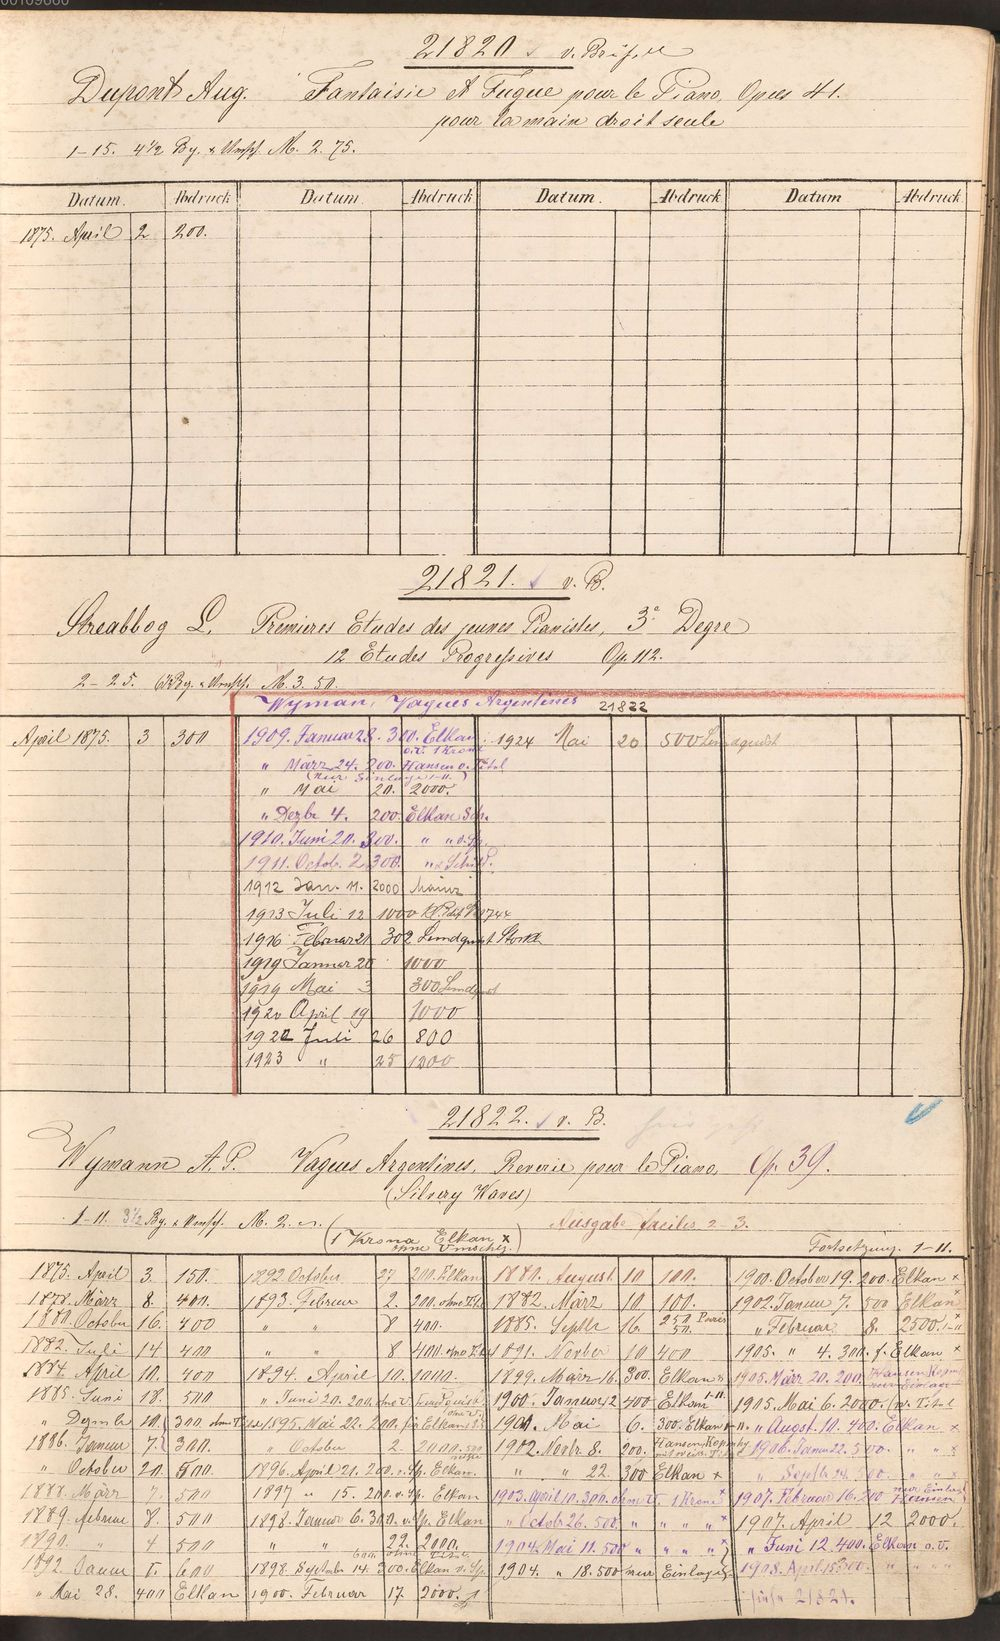 21820 v.
Dupont Aug. Fantaisie et Fugue pour le Piano, Opus 41.
pour la main droit seule
1-15. 4½ Bg. & Umschl. M. 2. 75.
Datum. Abdruck Datum Abdruck Datum. Abdruck Datum Abdruck
1875. April 2 200.
21821. v. B.
Streabbog L. Premieres Etudes des jeunes Pianistes, 3e Degre
12 Etudes Progressives Op. 112.
2-25. Bg. & Umschl. M. 3. 50.
Wyman, Vagues Argentines 21822
April 1875. 3 300
1909. Januar 28. 300. Elkan
o. U. 1 Krone
" März 24. 200. Hansen o. Titel
(nur Einlage 1-11.)
" Mai 20. 2000.
" Dezbr 4. 200. Elkan
1910. Juni 20. 300. " "
1911. Octob. 2 300. "
1912 Jan. 11. 2000 Mainz
1913 Juli 12 1000
1916 Februar 21 302 Lundquist Stockh
1919 Januar 20 1000
1919 Mai 3 300 Lundquist
1920 April 19 1000
1922 Juli 26 800
1923 " 25 1200
1924 Mai 20 500 Lundquist
21822. v. B.
Wymann A. P. Vagues Argentines, Reverie pour le Piano, Op. 39.
(Silvery Waves)
1-11. 3½ Bg. & Umschl. M. 2.
Ausgabe facilee 2-3.
(1 Krona Elkan x
ohne Umschlg.)
Fortsetzung 1-11.
1875. April 3. 150.
1878. März 8. 400.
1880. October 16. 400
1882. Juli 14 400
1884. April 10. 400
1885. Juni 18. 500
" Dezmbr 10. 300. ohne T.
1886. Januar 7. 300.
" October 20. 500.
1888. März 7. 500
1889. Februar 8. 500
1890. " 4 500
1892. Januar 600
" Mai 28. 400 Elkan
1892 October 27 200. Elkan
1893. Februar 2. 200. ohne Titel
" " 8 400.
" " 8 400.
1894. April 10. 1000.
" Juni 20. 200.
1895. Mai 22. 200. Elkan
" October 2 2000.
1896. April 21. 200. Elkan
1897 " 15. 200. Elkan
1898. Januar 6. 300. Elkan
" " 22. 2000.
1898. Septbr 14. 300. Elkan
1900. Februar 17. 2000.
1880. August 10 100.
1882. März 10 100.
1885. Septbr 16. 250 Paris
50.
1891. Novber 10 400
1899. März 16. 300. Elkan
1900. Januar 12 400 Elkan 1-11.
1901. Mai 6. 300. Elkan
1902 Novbr 8. 200. Hansen Kopenhg
" " 22. 300 Elkan x
1903. April 10. 300. ohne U. 1 Krone x
" Octob 26. 500. " " " x
1904. Mai 11. 500 " " " "
1904. " 18. 500 nur Einlage
1900. October 19. 200. Elkan x
1902. Januar 7. 500 Elkan x
" Februar 8. 2500. 1-11
1905. " 4. 300. f. Elkan x
1905. März 20. 200. Hansen Kopenh
nur Einlage
1905. Mai 6. 2000. Titel
" Augst. 10. 400. Elkan x
1906. Januar 22. 500. " " x
" Septbr 24. 500. " " x
1907. Februar 16. 200 nur Einlage
Hansen
1907. April 12 2000.
" Juni 12. 400. Elkan o. U.
1908. April 15. 300. " "
siehe 21821.